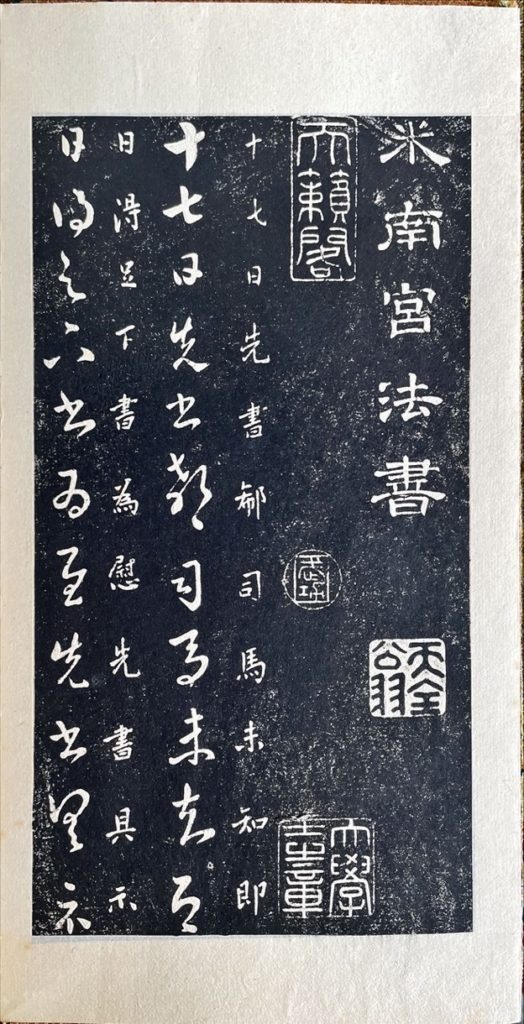 米南宮法書
天全翁
天籟閣
十七日先書郗司馬未知即
十七日先書郗司馬未去即
日得足下書為慰先書具示
日得足下書為慰先書具示